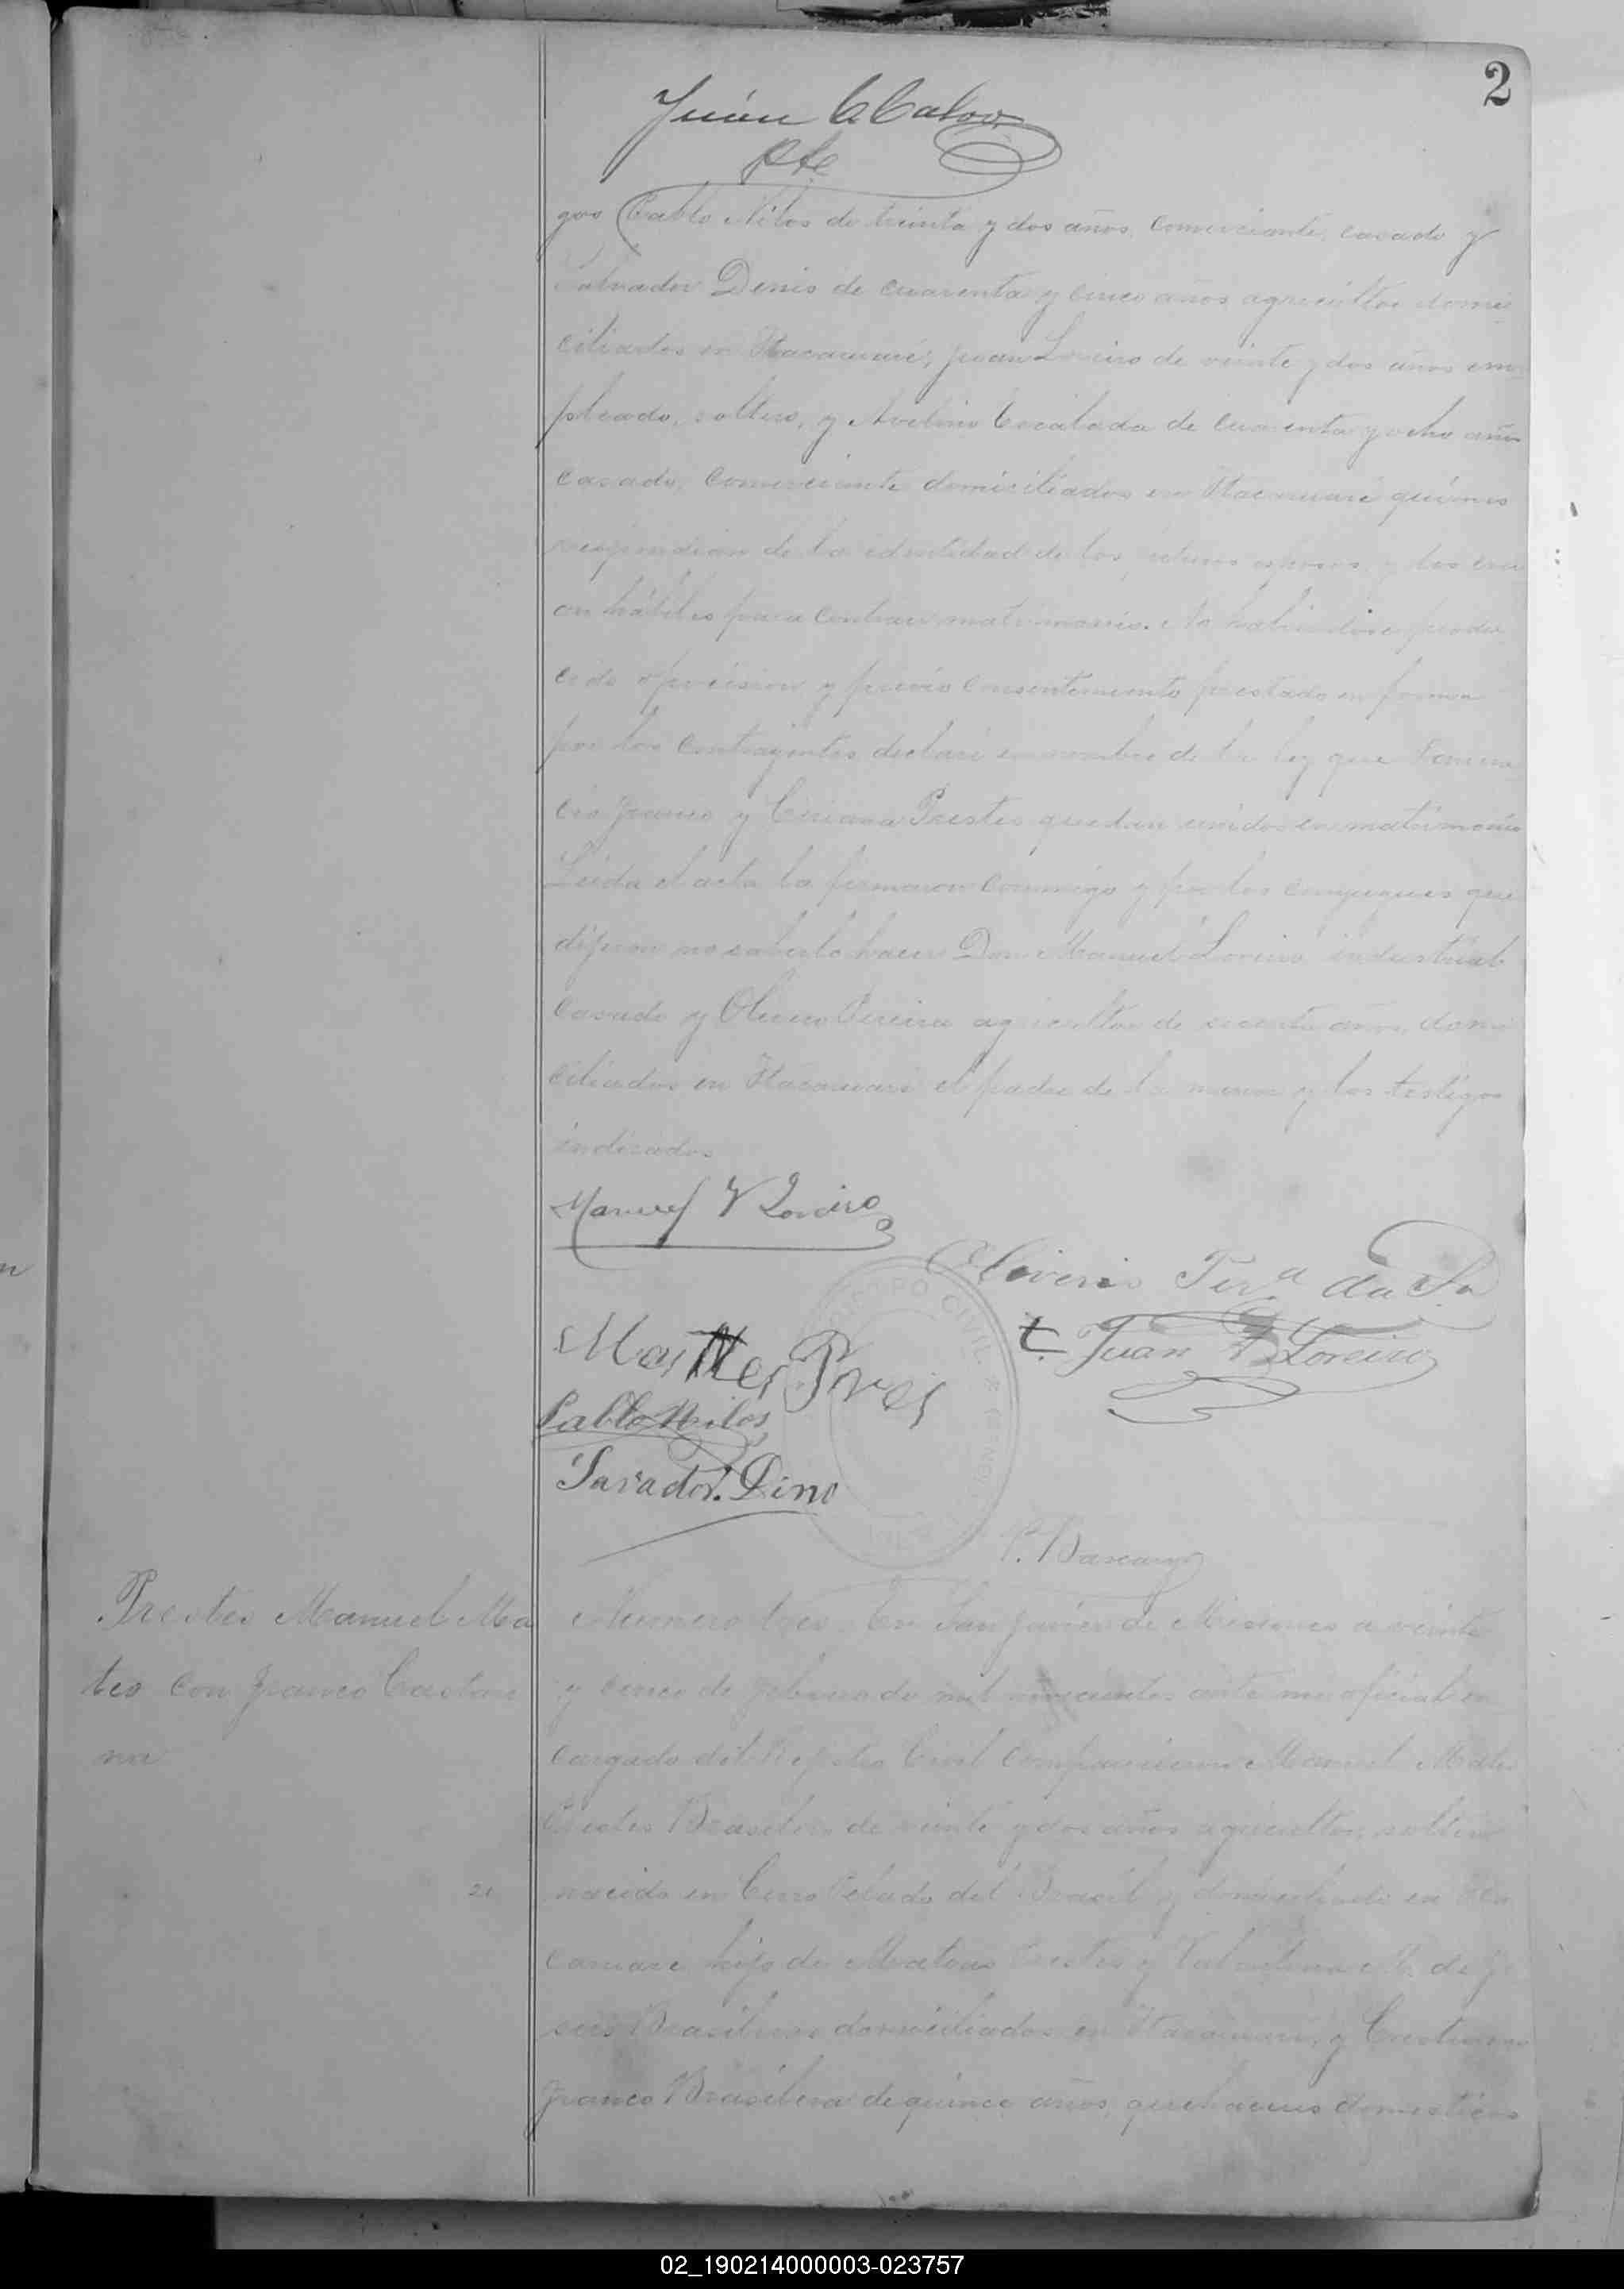 2
Juan C Calvo
Pte
gos Pablo Nilos de treinta y dos años, comerciante, casado y
Salvador Denis de cuarenta y cinco años agricultor domi
ciliados en Itacaruaré, Juan Loreiro de veinte y dos años em
pleado, soltero, y Avelino Escalada de cuarenta y ocho años
casado, comerciante domiciliados en Itacaruaré quienes
respondian de la identidad de los futuros esposos y los cre
an hábiles para contraer matrimonio. No habiendose produ
cido oposicion y previo consentimiento prestado en forma
por los contrayentes declaré en nombre de la ley que
cio Franco y Prestes quedan unidos en matrimonio
Leida el acta la firmaron conmigo y por los conyugues que
dijeron no saberlo hacer Don Manuel Loreiro industrial
casado y Pereira agricultor de años domi
ciliados en Itacaruaré el padre de la menor y los testigos
indicados
Manuel Loreiro
da
Juan B Loreiro
Pablo Nilos
Savador Dino
REGISTRO CIVIL
Prestes Manuel Ma
teo con Franco Cristi
na
Numero tres. En San Javier de Misiones a veinte
y cinco de Febrero de mil novecientos ante mi oficial en
cargado del Registro Civil comparecieron Manuel Mateo
Prestes Brasilero de veinte y dos años agricultor, soltero
nacido en Cerro Pelado del Brasil y domiciliado en Ita
caruaré hijo de Prestes y de Je
sus Brasileros domiciliados en Itacaruaré, y Cristina
Franco Brasilera de quince años, quehaceres domesticos
02_190214000003-023757